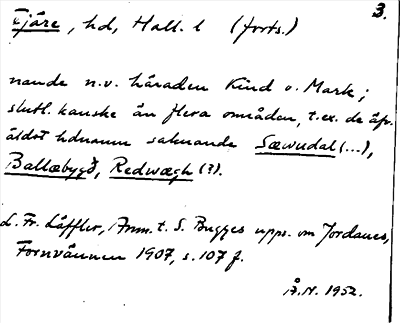 3.
Fjäre, hd, Hall. l (forts.)
nande n.v. häraden Kind o. Mark;
slutl. kanske än flera områden, t.ex. de äfv.
äldst hdnamn saknande Sæwudal (...),
Ballæbygð, Redwægh (?).
L. Fr. Läffler, Anm. t. S. Bugges upps. om Jordanes,
Fornvännen 1907, s. 107 f.
Å.N. 1952.